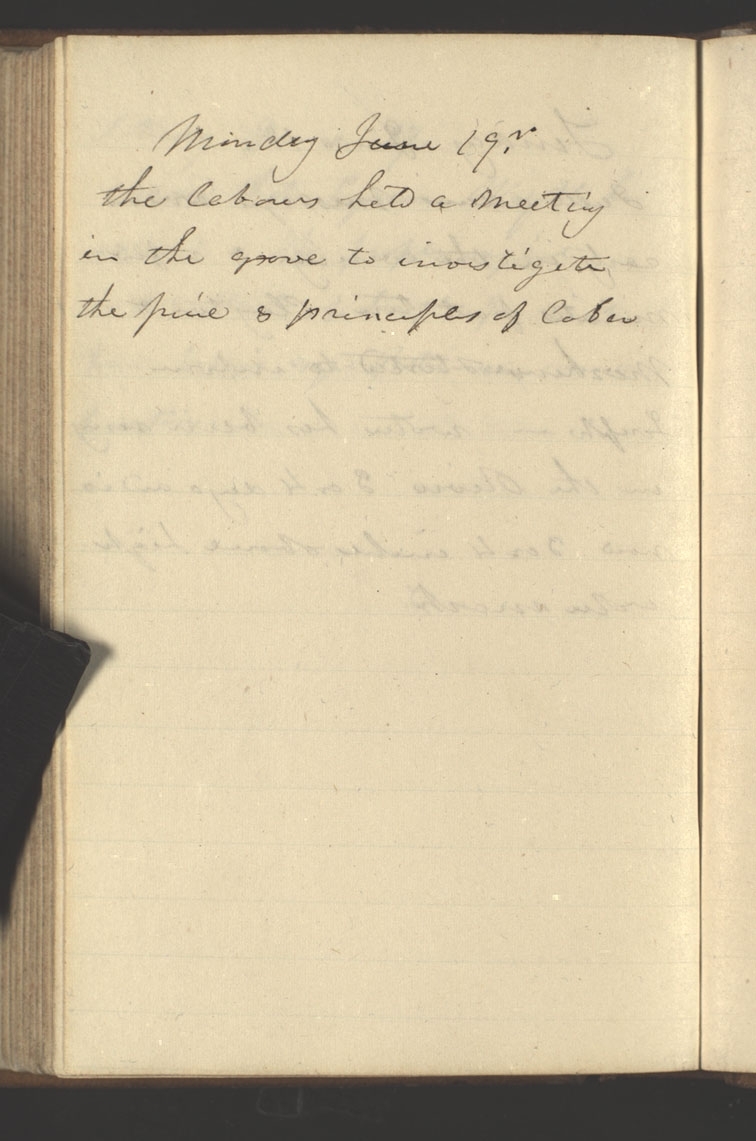 Monday June 19th
the Labours held a meeting
in the grove to investigate
the price & principles of Labor